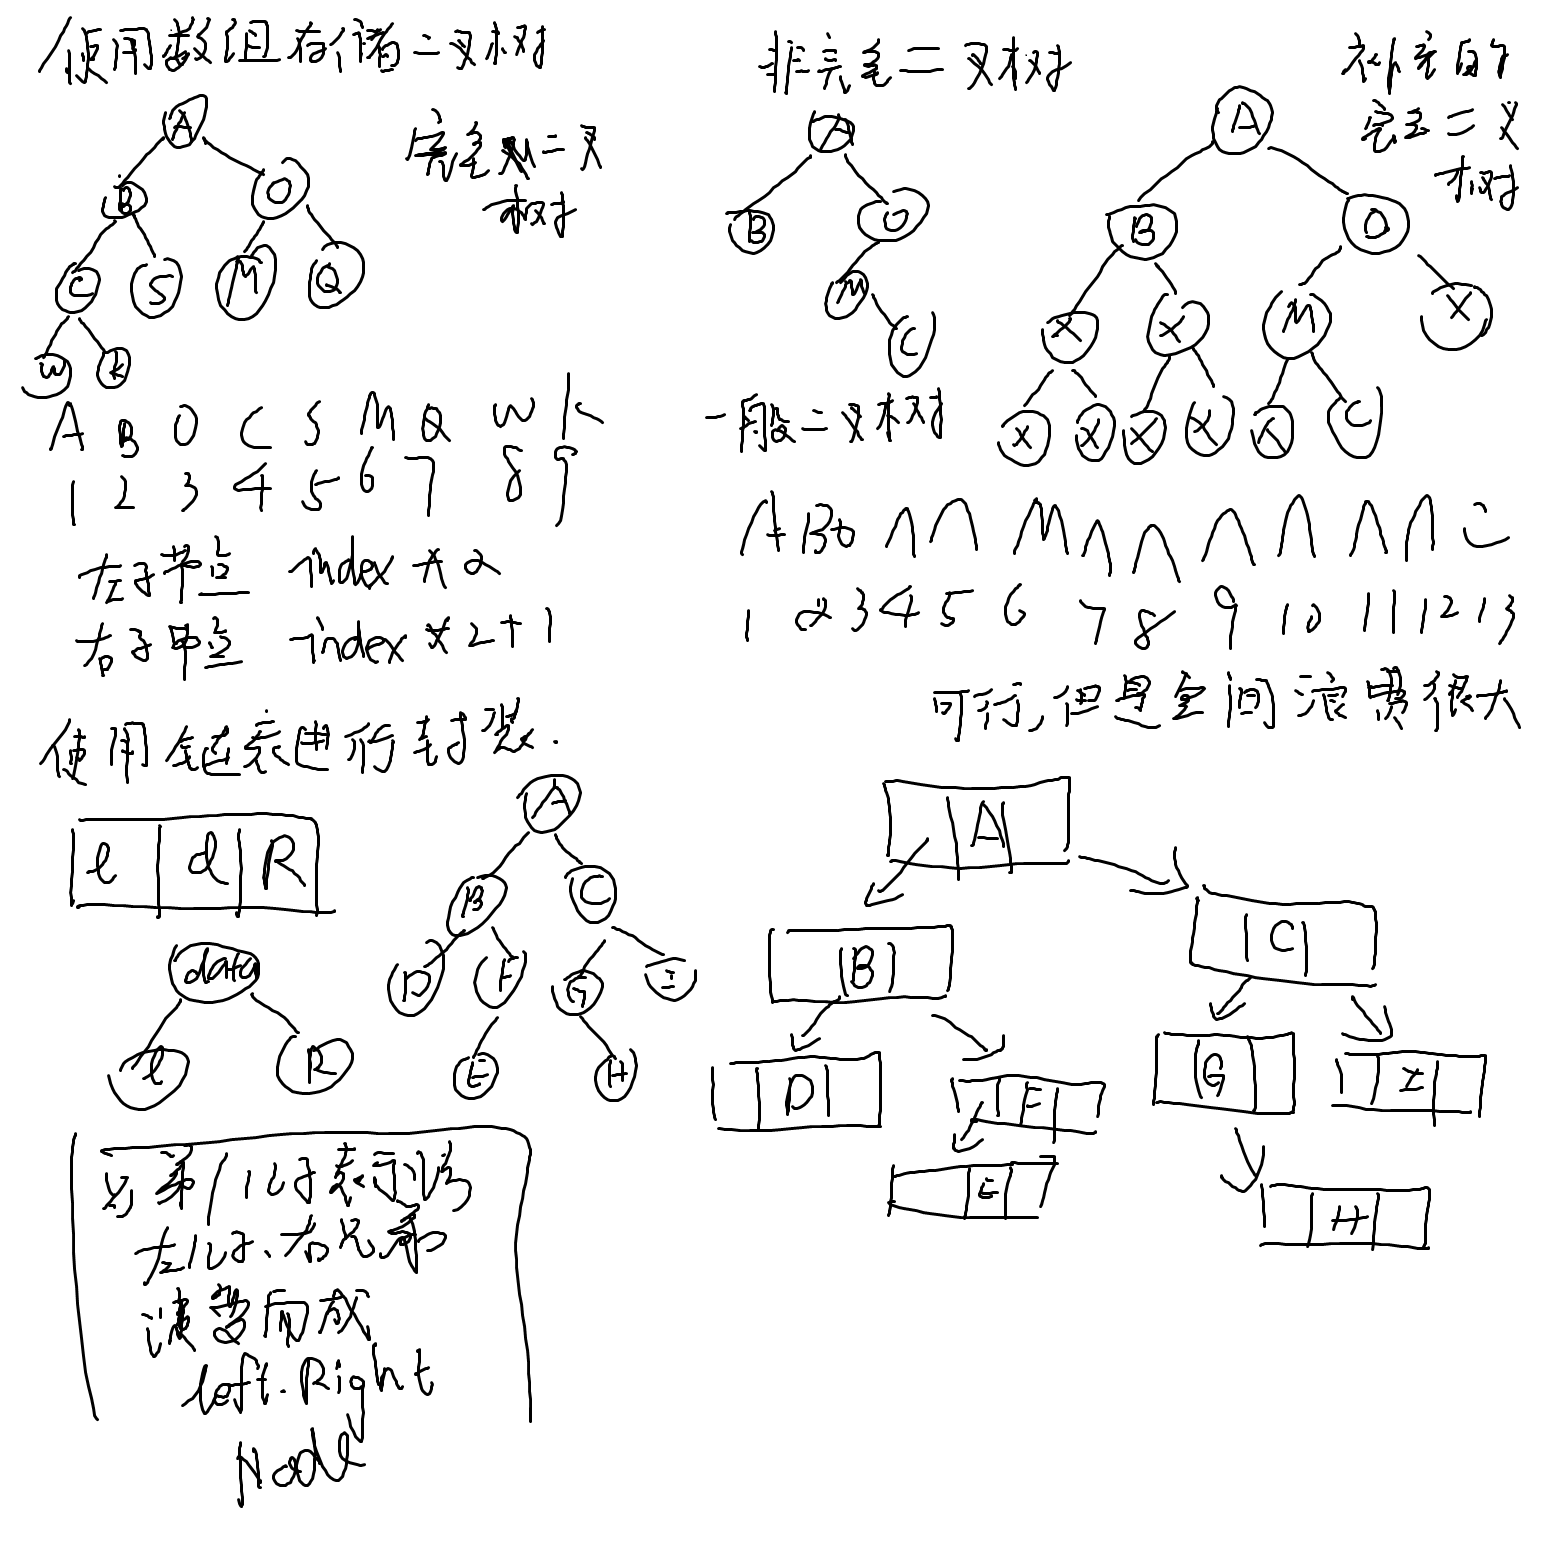 使用数组存储二叉树
完全二叉
树
A
B
O
C
S
M
Q
W
K
A B O C S M Q W K
1 2 3 4 5 6 7 8 9
左子节点 index * 2
右子节点 index * 2 + 1
非完全二叉树
A
B
O
M
C
一般二叉树
补充的
完全二叉
树
A
B
O
X
X
M
X
X
X
X
X
X
C
A B O ∧ ∧ M ∧ ∧ ∧ ∧ ∧ ∧ C
1 2 3 4 5 6 7 8 9 10 11 12 13
可行,但是空间浪费很大
使用链表进行封装.
l d R
data
l
R
A
B
C
D
F
G
I
E
H
A
B
C
D
F
G
I
E
H
兄弟/儿子表示法
左儿子、右兄弟
演变而成
left.Right
Node